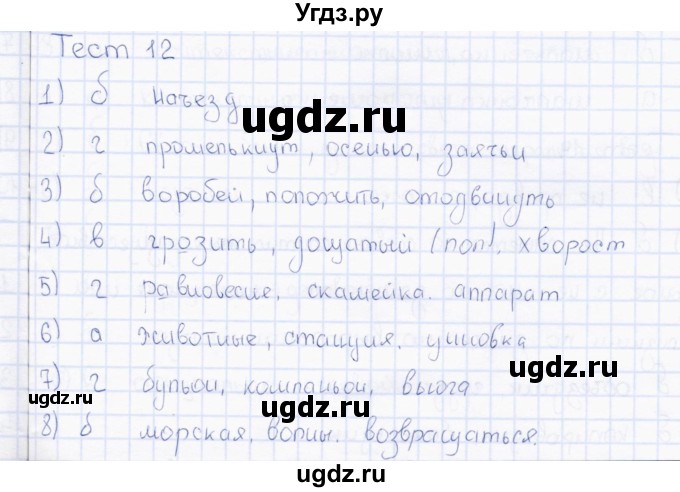 Угдз.ру
Тест 12
1) б наъезд
ugdz.ru
2) г промелькнут, осенью, заячьи
ugdz.ru
3) б воробей, положить, отодвинуть
4) в грозить, дощатый (пол). хворост
ugdz.ru
5) г равновесие, скамейка. аппарат
6) а животные, станция. циновка
ugdz.ru
7) г бульон, компаньон, вьюга
ugdz.ru
ugdz.ru
8) б морская, волны. возвращаться.
ugdz.ru